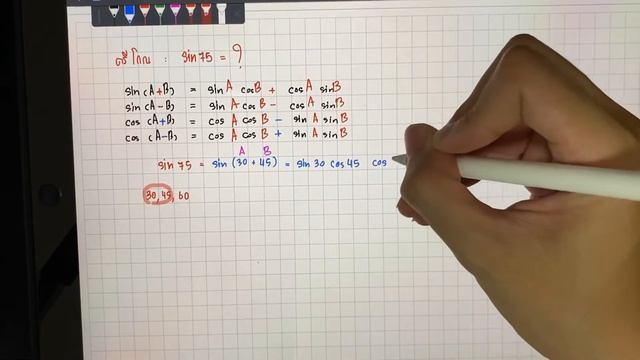 ตรีโกณ : sin 75 = ?
sin (A+B) = sin A cos B + cos A sin B
sin (A-B) = sin A cos B - cos A sin B
cos (A+B) = cos A cos B - sin A sin B
cos (A-B) = cos A cos B + sin A sin B
A B
sin 75 = sin (30 + 45) = sin 30 cos 45 cos
30, 45, 60